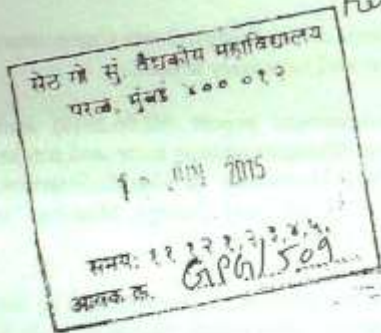 सेठ गो सुं वैद्यकीय महाविद्यालय
परळ, मुंबई ४०० ०१२
JUN 2015
समय: ११ १२ १, २, ३, ४, ५,
आवक क्र. GPG/509